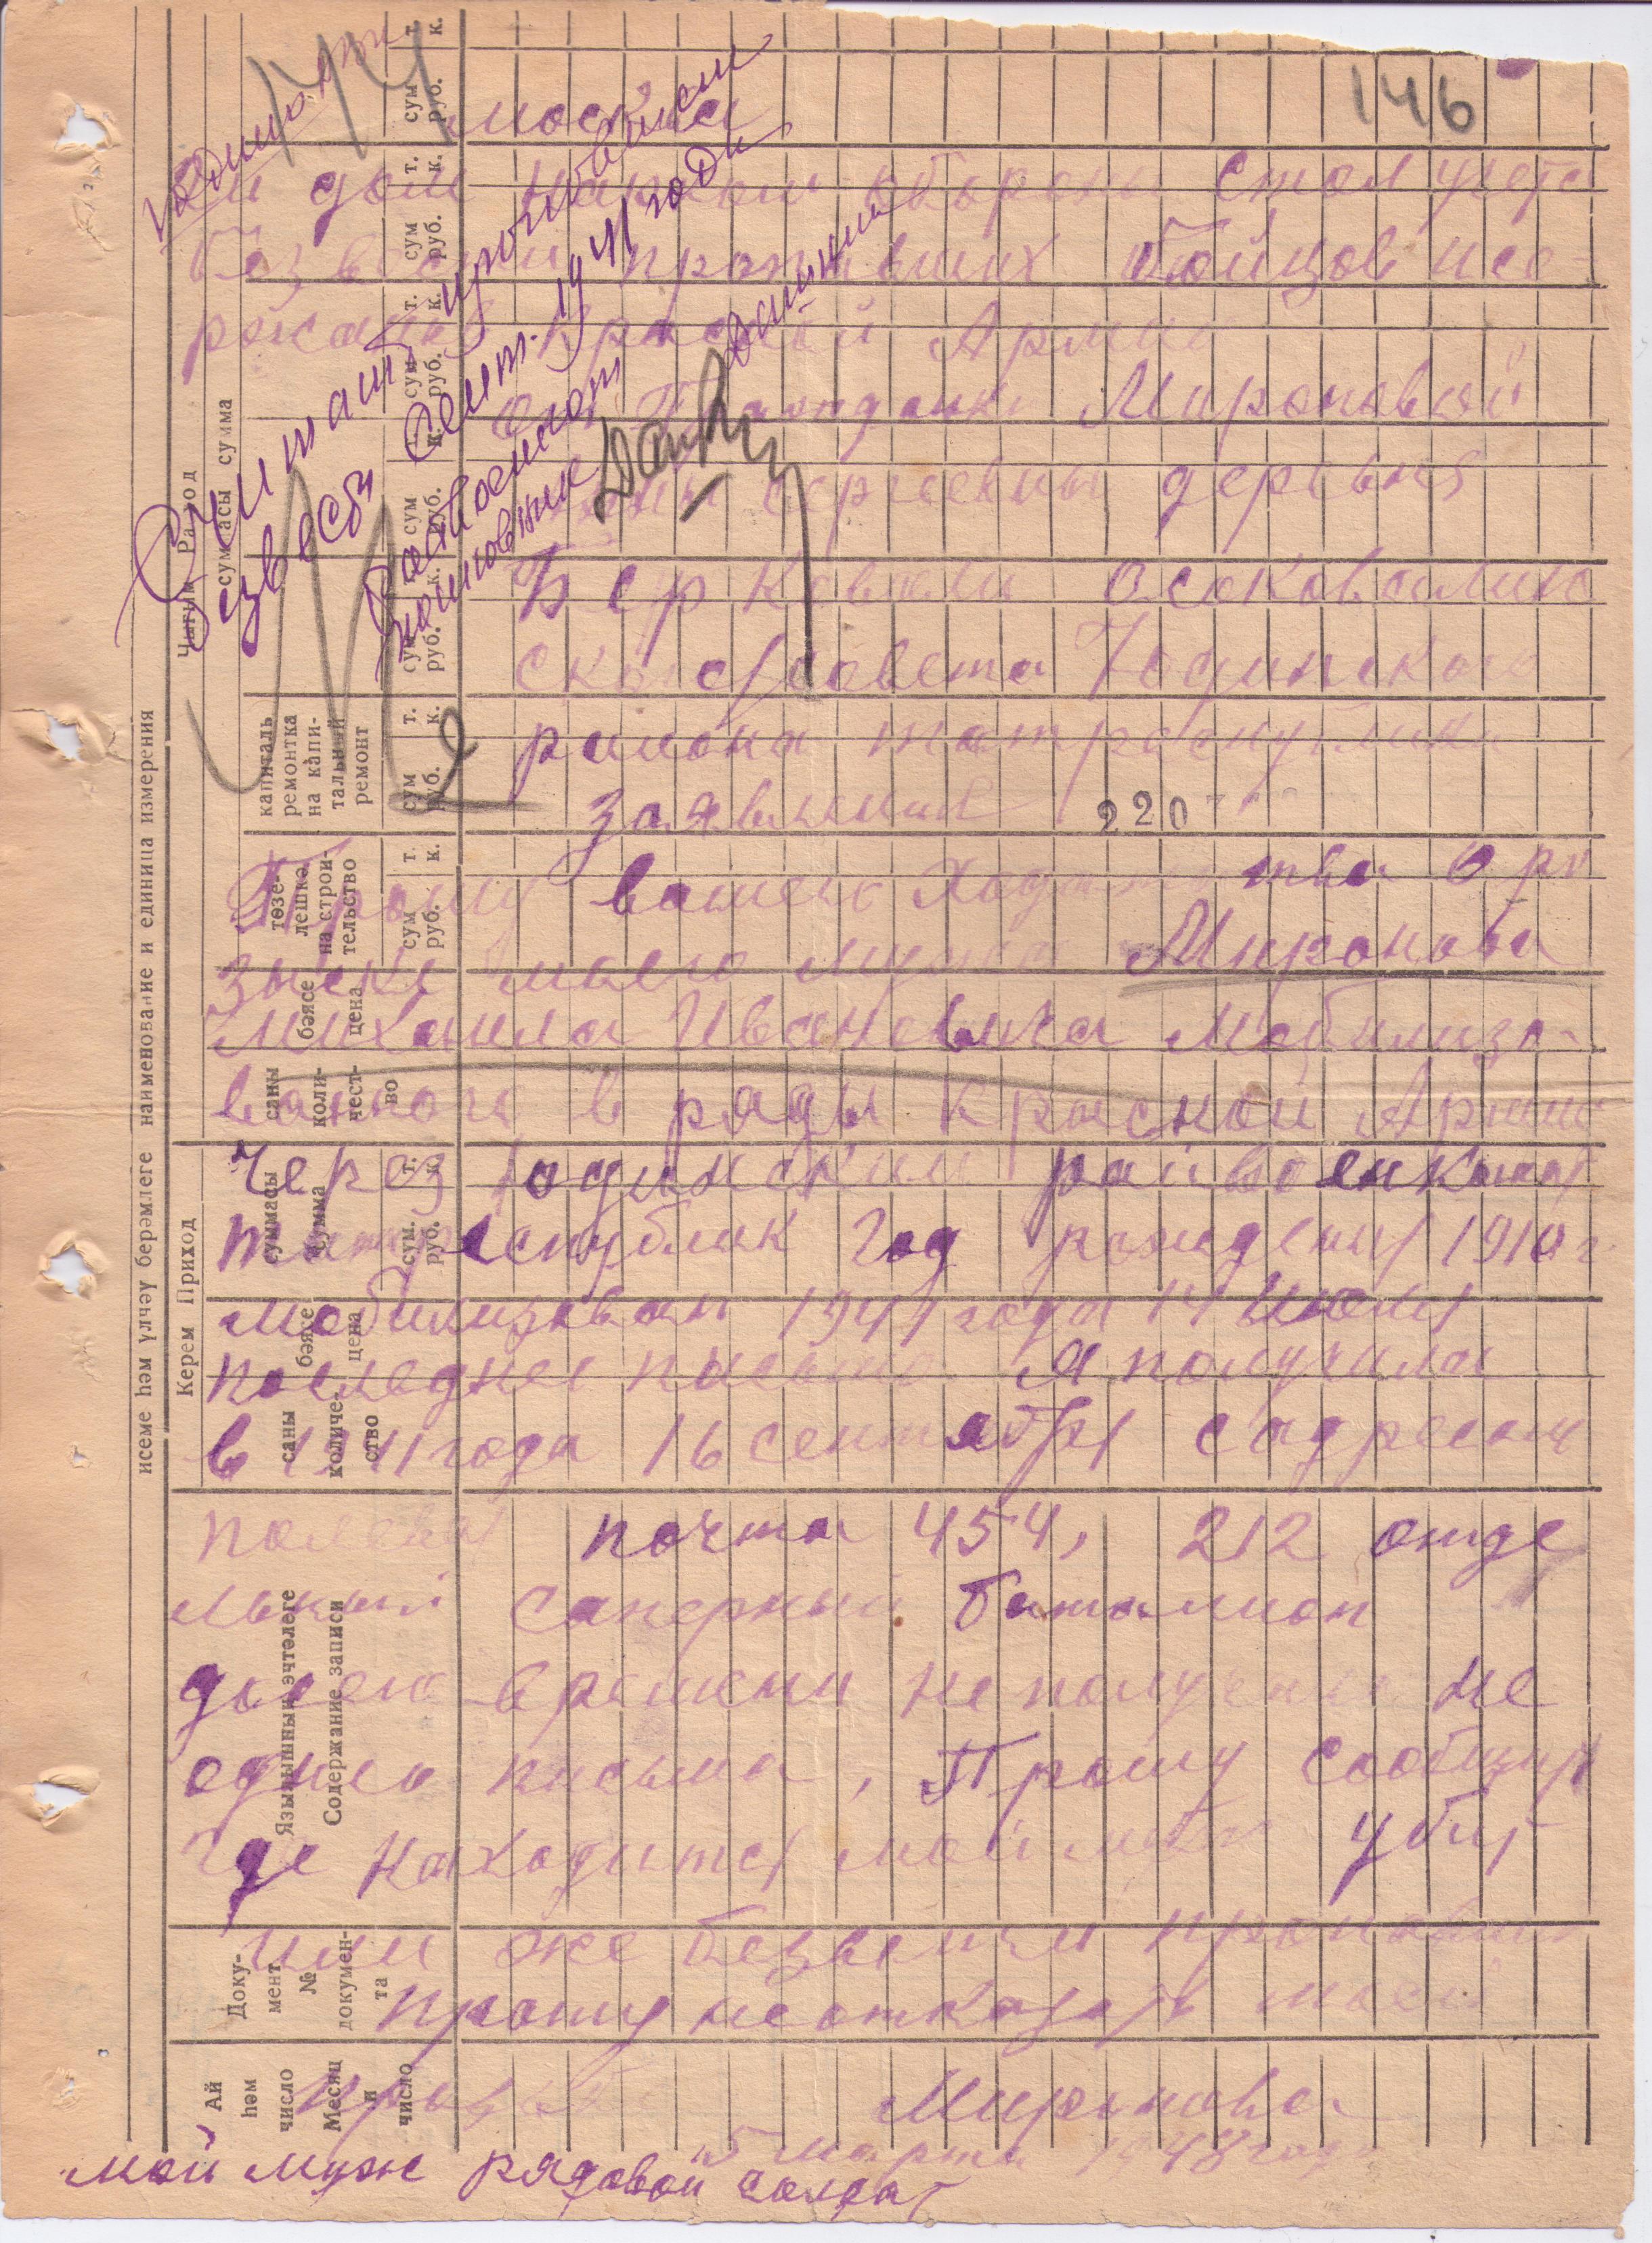 146
москва
дом наркома обороны стол учета
безвести пропавших бойцов и се
ржантов Красной Армии
От Гражданки Мироновый
Сергеевны деревня
Берковоли
Юдинского
района татреспублики
заявления 220
Прошу вашего ходатоства о ро
зыске моего мужа Миронова
Михаила Ивановича мобилизо-
ванного в ряды Красной Армии
через Юдинский райвоенкомат
татреспублик год рождения 1910 г
мобилизован 1941 года 14 июля
последнее письмо я получила
в 1941 года 16 сентября садресом
полевая почта 454, 212 отде
льный саперный баталион
до сего времени не получила не
одного письма, Прошу сообщить
где находится мой муж убит
или же безвести пропавший
прошу не отказать моей
просьбе Миронова
5 марта 1948 года
мой муж рядовой солдат
Считать пропавшим
безвести Сент. 1941 года
исеме һәм үлчәү берәмлеге наименование и единица измерения
Чыгым Расход
суммасы сумма
капиталь ремонтка на капитальный ремонт
төзелешкә на строительство
бәясе цена
саны количество
Керем Приход
суммасы сумма
бәясе цена
саны количество
сум руб. т. к.
Язылышның эчтәлеге Содержание записи
Документ № документа
Ай һәм число Месяц и число